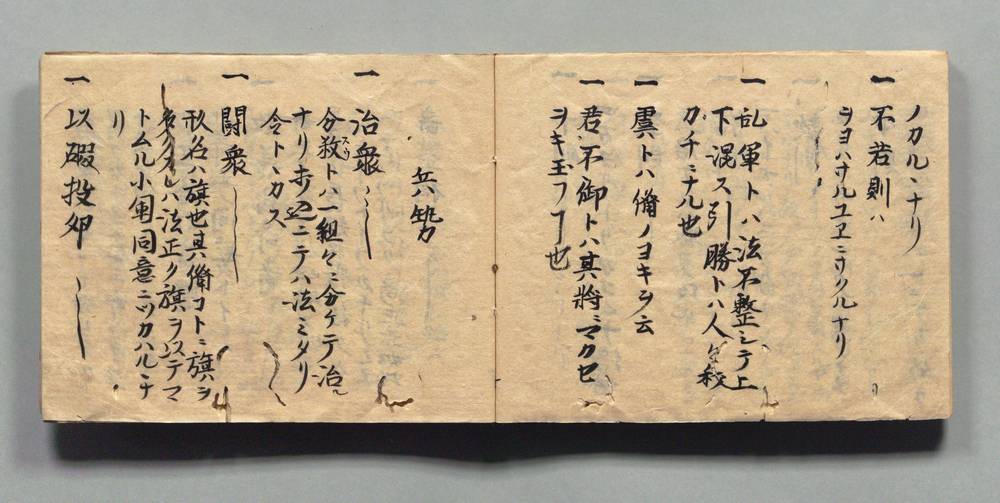 ノカルヽナリ
一 不若則ハ
ヲヨハサルユヱニサクルナリ
一 乱軍トハ法不整シテ上
下混ス引勝トハ人ガ敵
ガチニナル也
一 虞トハ備ノヨキヲ云
一 君不御トハ其将ニマカセ
ヲキ玉フヿ也
兵勢
一 治衆
分数トハ一組々ニ分ケテ治ル
ナリ
令ト
一 闘衆
形名ハ旗也其備コトニ旗ヲ
法正ク旗ヲ以テマ
トムル小軍同意ニツカハルヽナ
リ
一 以碬投卵